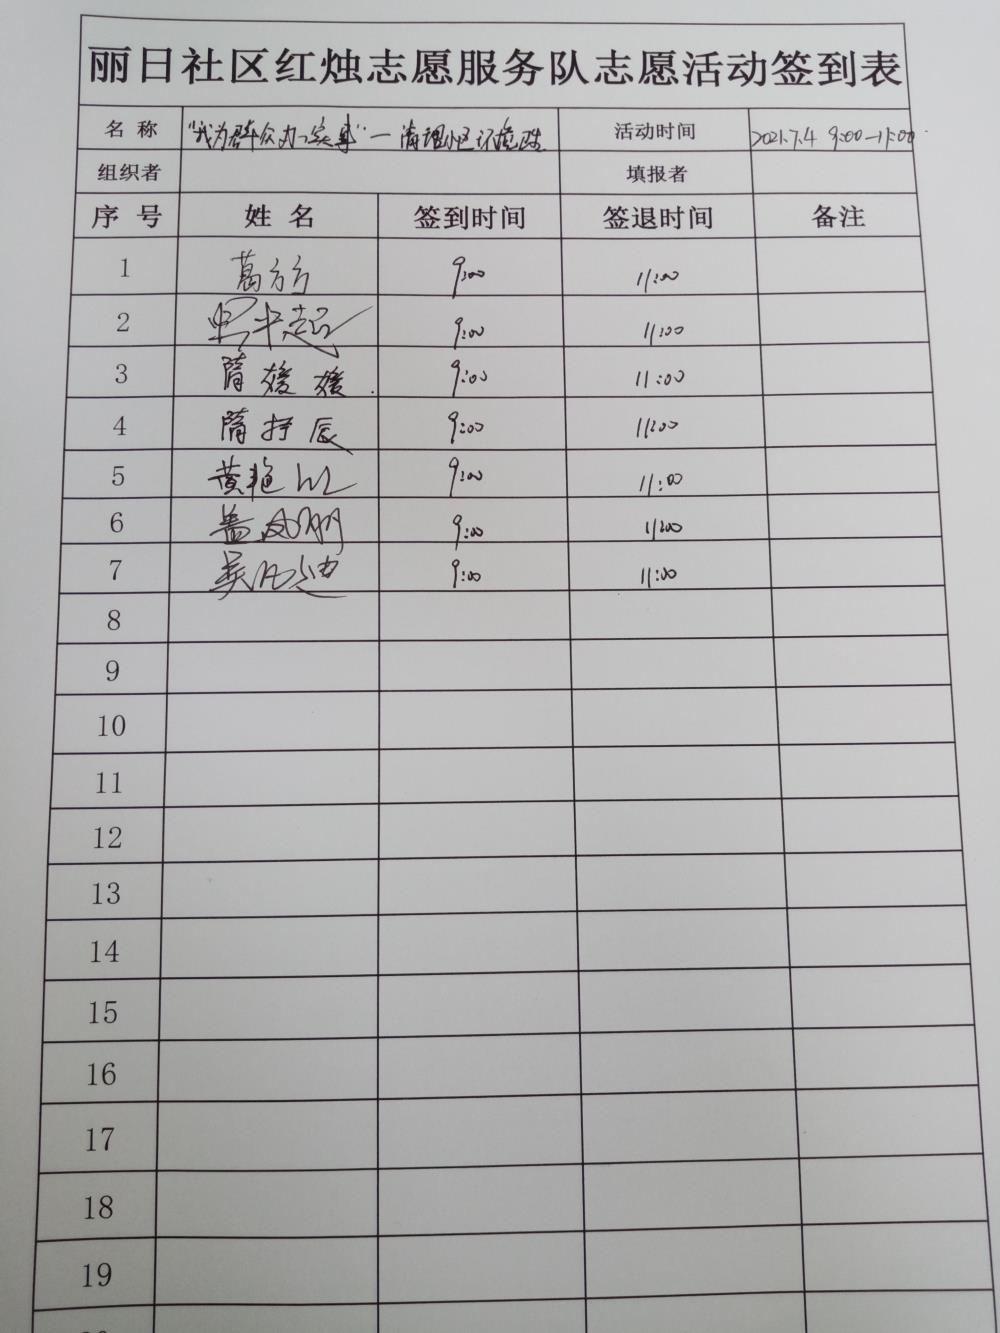 丽日社区红烛志愿服务队志愿活动签到表
名 称 "我为群众办实事"一清理小区环境 活动时间 2021.7.4 9:00-11:00
组织者 填报者
序 号 姓 名 签到时间 签退时间 备注
1 葛方方 9:00 11:00
2 9:00 11:00
3 隋媛媛 9:00 11:00
4 隋抒辰 9:00 11:00
5 黄艳 9:00 11:00
6 盖凤朋 9:00 11:00
7 9:00 11:00
8
9
10
11
12
13
14
15
16
17
18
19